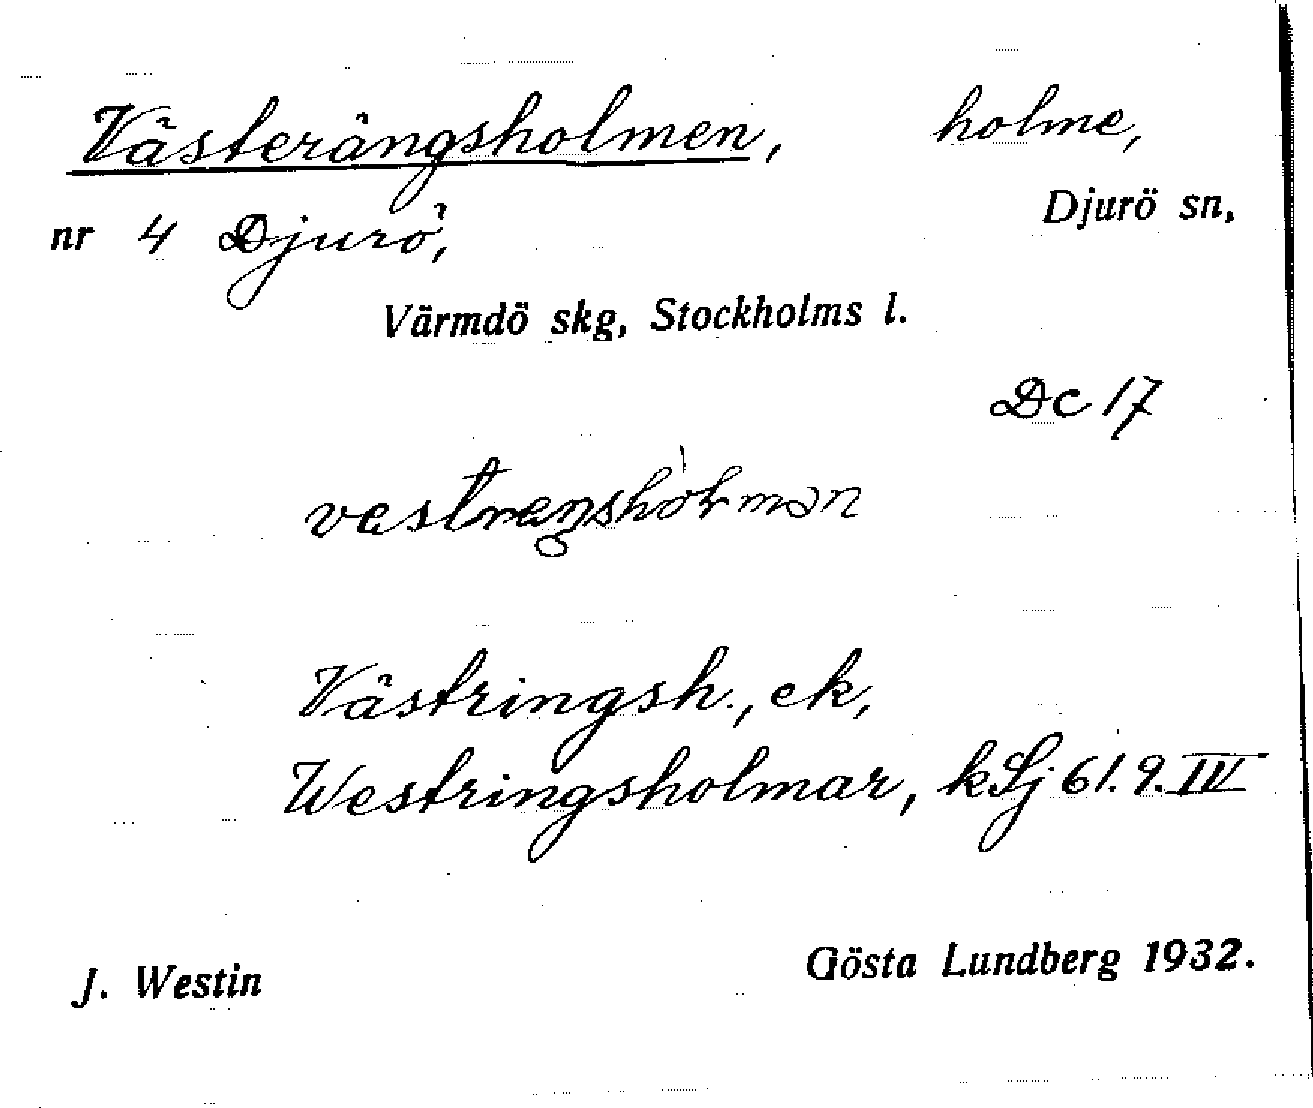 Västerängsholmen, holme,
nr 4 Djurö, Djurö sn,
Värmdö skg, Stockholms l.
Dc 17
Västringsh., ek,
Westringsholmar, kSj 61.9.IV
J. Westin Gösta Lundberg 1932.